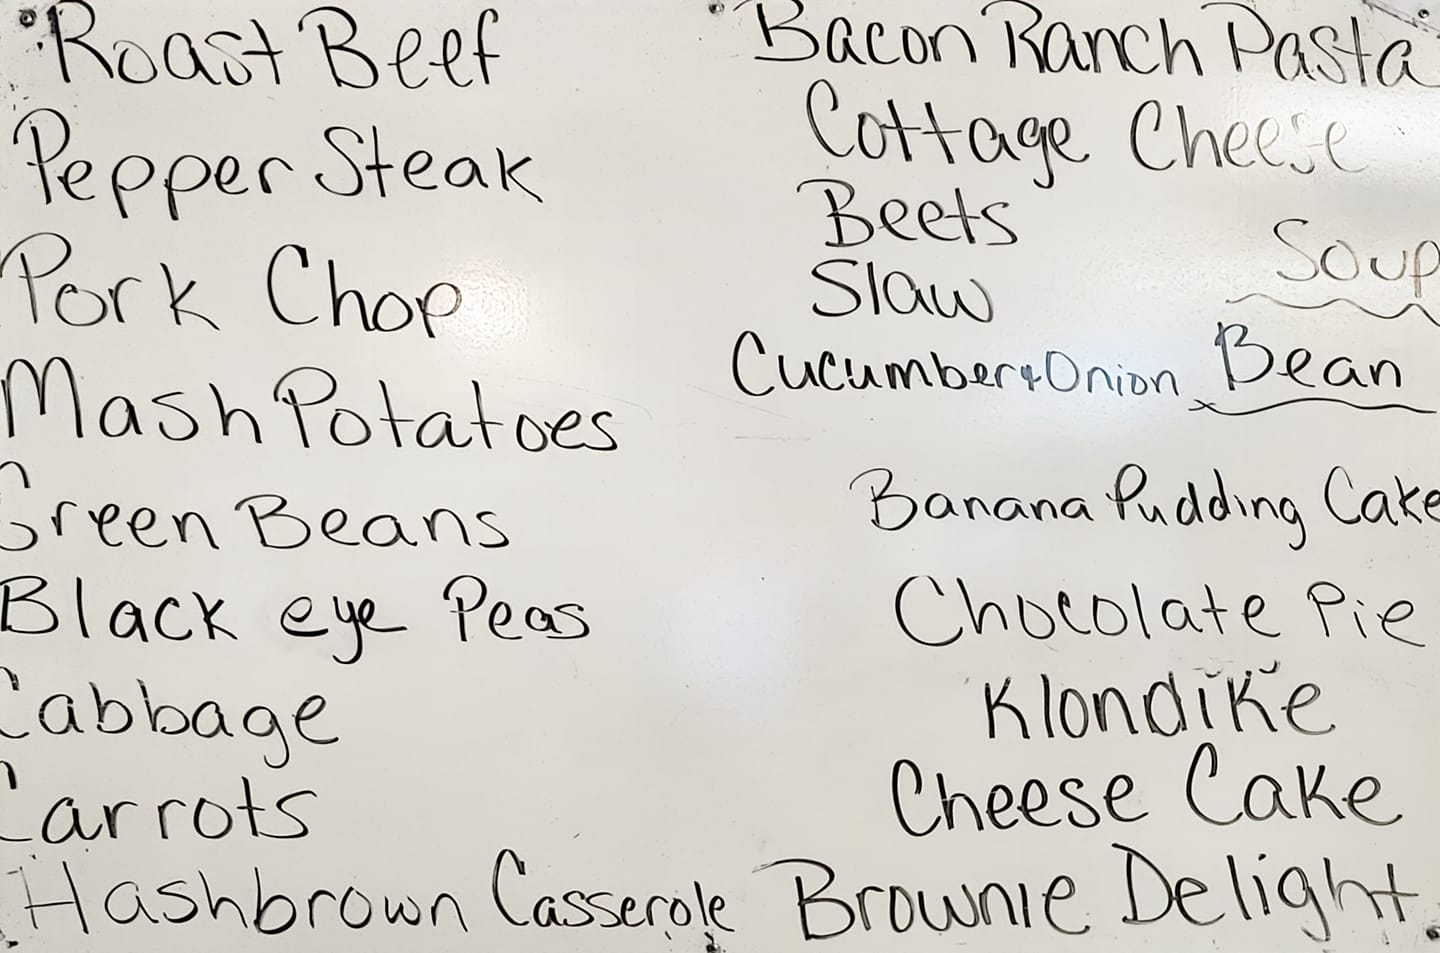 Roast Beef
Pepper Steak
Pork Chop
Mash Potatoes
Green Beans
Black eye Peas
Cabbage
Carrots
Hashbrown Casserole
Bacon Ranch Pasta
Cottage Cheese
Beets
Slaw
Cucumber & Onion
Soup
Bean
Banana Pudding Cake
Chocolate Pie
Klondike
Cheese Cake
Brownie Delight